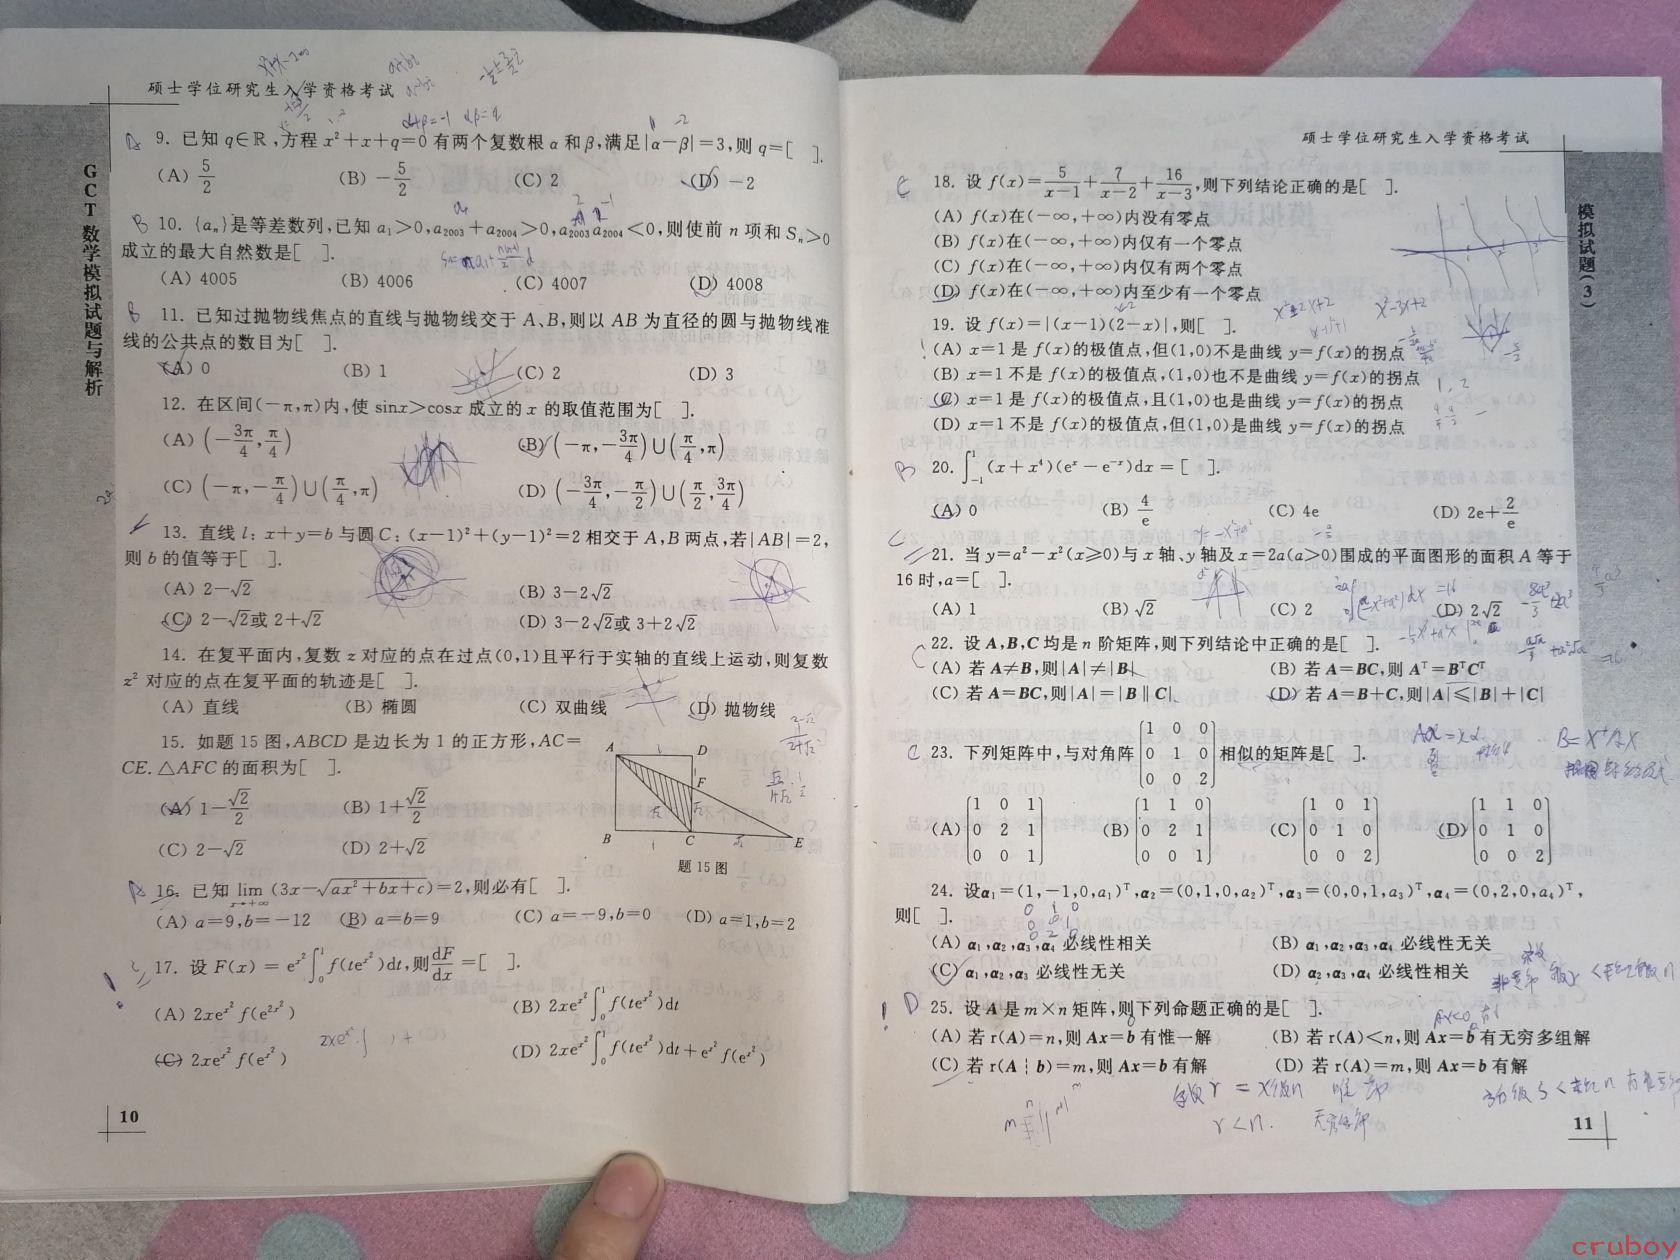 硕士学位研究生入学资格考试
GCT数学模拟试题与解析
9. 已知 q∈ℝ,方程 x²+x+q=0 有两个复数根 α 和 β,满足|α－β|=3,则 q=[ ].
(A) 5/2 (B) －5/2 (C) 2 (D) －2
10. {aₙ}是等差数列,已知 a₁>0,a₂₀₀₃+a₂₀₀₄>0,a₂₀₀₃a₂₀₀₄<0,则使前 n 项和 Sₙ>0
成立的最大自然数是[ ].
(A) 4005 (B) 4006 (C) 4007 (D) 4008
11. 已知过抛物线焦点的直线与抛物线交于 A、B,则以 AB 为直径的圆与抛物线准
线的公共点的数目为[ ].
(A) 0 (B) 1 (C) 2 (D) 3
12. 在区间(－π,π)内,使 sinx>cosx 成立的 x 的取值范围为[ ].
(A) (－3π/4,π/4) (B) (－π,－3π/4)∪(π/4,π)
(C) (－π,－π/4)∪(π/4,π) (D) (－3π/4,－π/2)∪(π/2,3π/4)
13. 直线 l: x+y=b 与圆 C: (x－1)²+(y－1)²=2 相交于 A,B 两点,若|AB|=2,
则 b 的值等于[ ].
(A) 2－√2 (B) 3－2√2
(C) 2－√2或 2+√2 (D) 3－2√2或 3+2√2
14. 在复平面内,复数 z 对应的点在过点(0,1)且平行于实轴的直线上运动,则复数
z² 对应的点在复平面的轨迹是[ ].
(A) 直线 (B) 椭圆 (C) 双曲线 (D) 抛物线
15. 如题 15 图,ABCD 是边长为 1 的正方形,AC=
CE.△AFC 的面积为[ ].
(A) 1－√2/2 (B) 1+√2/2
(C) 2－√2 (D) 2+√2
A D
F
B C E
题 15 图
16. 已知 lim x→+∞ (3x－√(ax²+bx+c))=2,则必有[ ].
(A) a=9,b=－12 (B) a=b=9 (C) a=－9,b=0 (D) a=1,b=2
17. 设 F(x) = e^(x²)∫₀¹ f(te^(x²))dt,则 dF/dx =[ ].
(A) 2xe^(x²) f(e^(2x²)) (B) 2xe^(x²)∫₀¹ f(te^(x²))dt
(C) 2xe^(x²) f(e^(x²)) (D) 2xe^(x²)∫₀¹ f(te^(x²))dt+e^(x²) f(e^(x²))
10
硕士学位研究生入学资格考试
模拟试题(3)
18. 设 f(x)=5/(x－1)+7/(x－2)+16/(x－3),则下列结论正确的是[ ].
(A) f(x)在(－∞,+∞)内没有零点
(B) f(x)在(－∞,+∞)内仅有一个零点
(C) f(x)在(－∞,+∞)内仅有两个零点
(D) f(x)在(－∞,+∞)内至少有一个零点
19. 设 f(x)=|(x－1)(2－x)|,则[ ].
(A) x=1 是 f(x)的极值点,但(1,0)不是曲线 y=f(x)的拐点
(B) x=1 不是 f(x)的极值点,(1,0)也不是曲线 y=f(x)的拐点
(C) x=1 是 f(x)的极值点,且(1,0)也是曲线 y=f(x)的拐点
(D) x=1 不是 f(x)的极值点,但(1,0)是曲线 y=f(x)的拐点
20. ∫₋₁¹ (x+x⁴)(eˣ－e⁻ˣ)dx = [ ].
(A) 0 (B) 4/e (C) 4e (D) 2e+2/e
21. 当 y=a²－x²(x≥0)与 x 轴、y 轴及 x=2a(a>0)围成的平面图形的面积 A 等于
16 时,a=[ ].
(A) 1 (B) √2 (C) 2 (D) 2√2
22. 设 A,B,C 均是 n 阶矩阵,则下列结论中正确的是[ ].
(A) 若 A≠B,则|A|≠|B| (B) 若 A=BC,则 Aᵀ=BᵀCᵀ
(C) 若 A=BC,则|A|=|B||C| (D) 若 A=B+C,则|A|≤|B|+|C|
23. 下列矩阵中,与对角阵[1 0 0; 0 1 0; 0 0 2]相似的矩阵是[ ].
(A) [1 0 1; 0 2 1; 0 0 1] (B) [1 1 0; 0 2 1; 0 0 1] (C) [1 0 1; 0 1 0; 0 0 2] (D) [1 1 0; 0 1 0; 0 0 2]
24. 设α₁=(1,－1,0,a₁)ᵀ,α₂=(0,1,0,a₂)ᵀ,α₃=(0,0,1,a₃)ᵀ,α₄=(0,2,0,a₄)ᵀ,
则[ ].
(A) α₁,α₂,α₃,α₄ 必线性相关 (B) α₁,α₂,α₃,α₄ 必线性无关
(C) α₁,α₂,α₃ 必线性无关 (D) α₂,α₃,α₄ 必线性相关
25. 设 A 是 m×n 矩阵,则下列命题正确的是[ ].
(A) 若 r(A)=n,则 Ax=b 有惟一解 (B) 若 r(A)<n,则 Ax=b 有无穷多组解
(C) 若 r(A┆b)=m,则 Ax=b 有解 (D) 若 r(A)=m,则 Ax=b 有解
11
cruboy